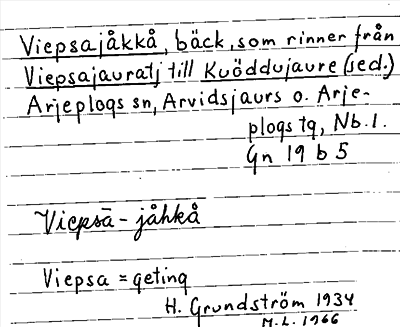 Viepsajåkkå, bäck, som rinner från
Viepsajauratj till Kuöddujaure (sed.)
Arjeplogs sn, Arvidsjaurs o. Arje-
plogs tg, Nb. l.
Gn 19 b 5
Viepsā - jåhkå
Viepsa = geting
H. Grundström 1934
M.L. 1966